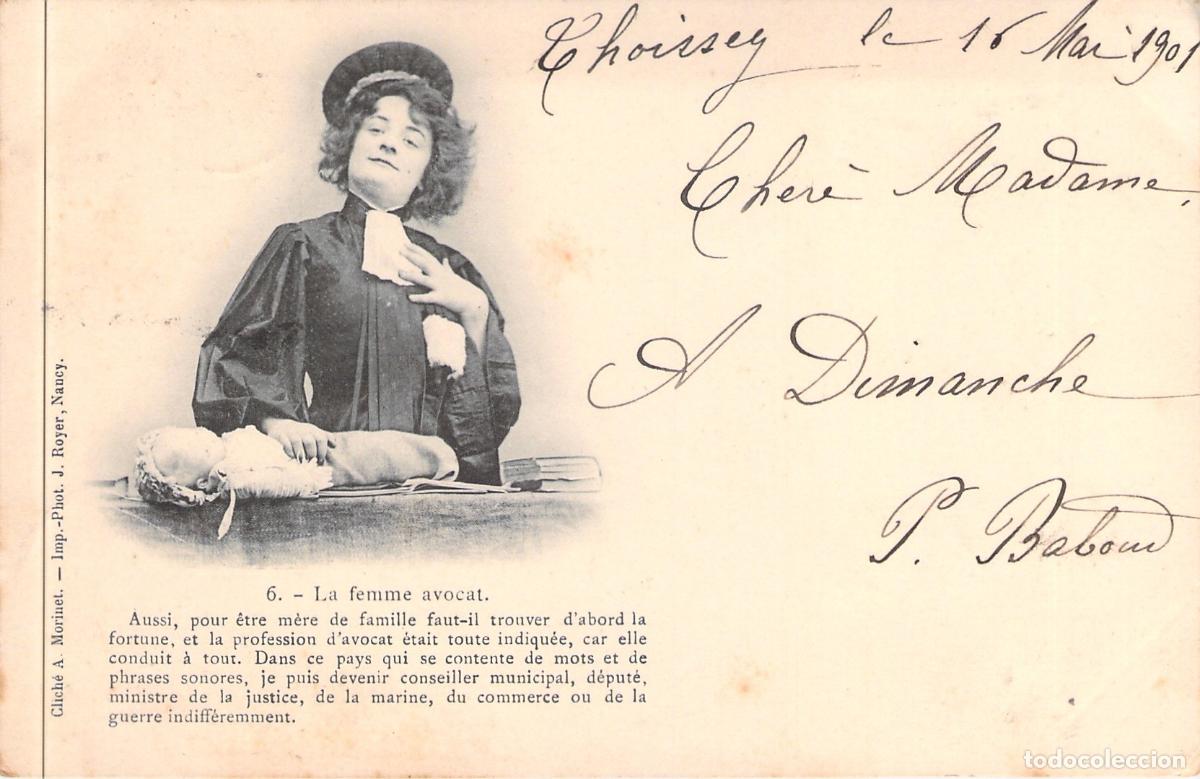 Thoissey le 16 Mai 1901
Cherè Madame,
A Dimanche
P. Baboud
6. - La femme avocat.
Aussi, pour être mère de famille faut-il trouver d'abord la
fortune, et la profession d'avocat était toute indiquée, car elle
conduit à tout. Dans ce pays qui se contente de mots et de
phrases sonores, je puis devenir conseiller municipal, député,
ministre de la justice, de la marine, du commerce ou de la
guerre indifféremment.
Cliché A. Morinet. — Imp.-Phot. J. Royer, Nancy.
todocoleccion